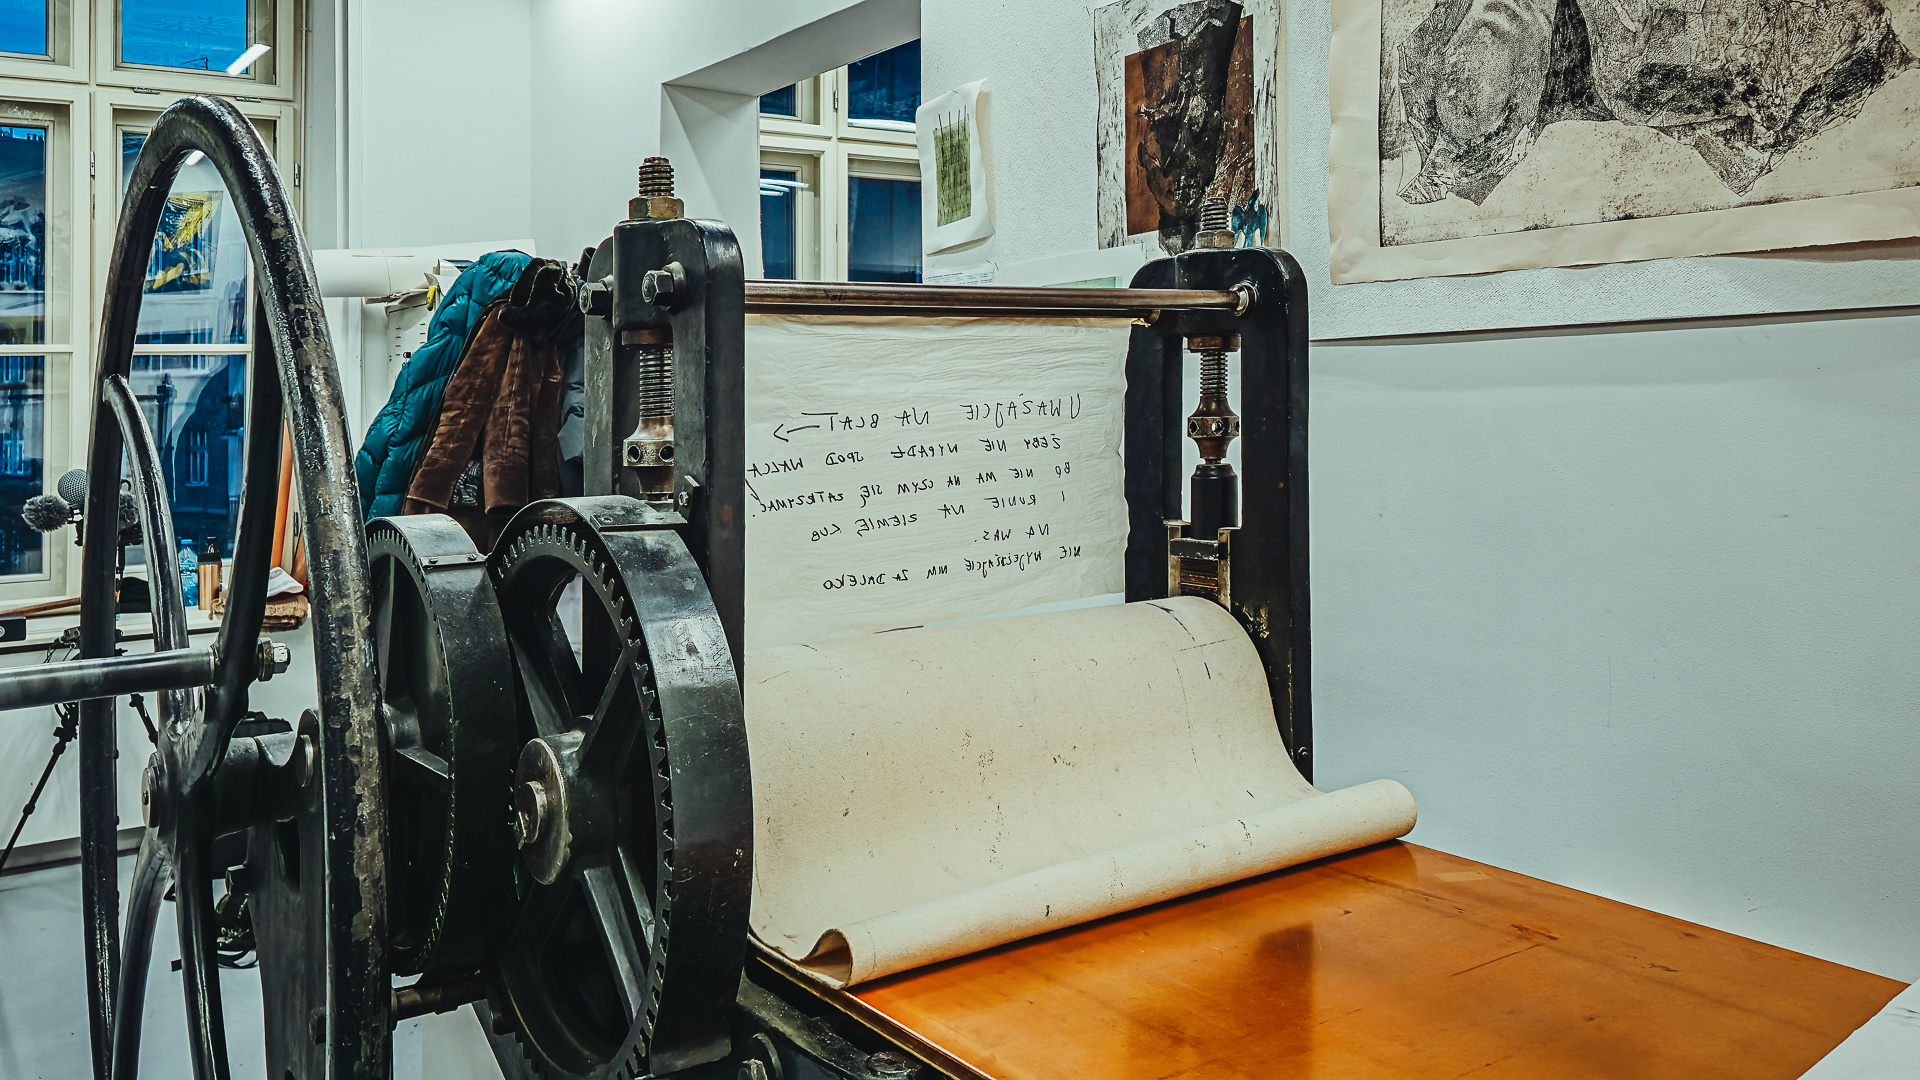 UWAŻAJCIE NA BLAT →
ŻEBY NIE WYPADŁ SPOD WAŁKA
BO NIE MA NA CZYM SIĘ ZATRZYMAĆ!
I RUNIE NA ZIEMIĘ LUB
NA WAS.
NIE WYJEŻDŻAJCIE NIM ZA DALEKO